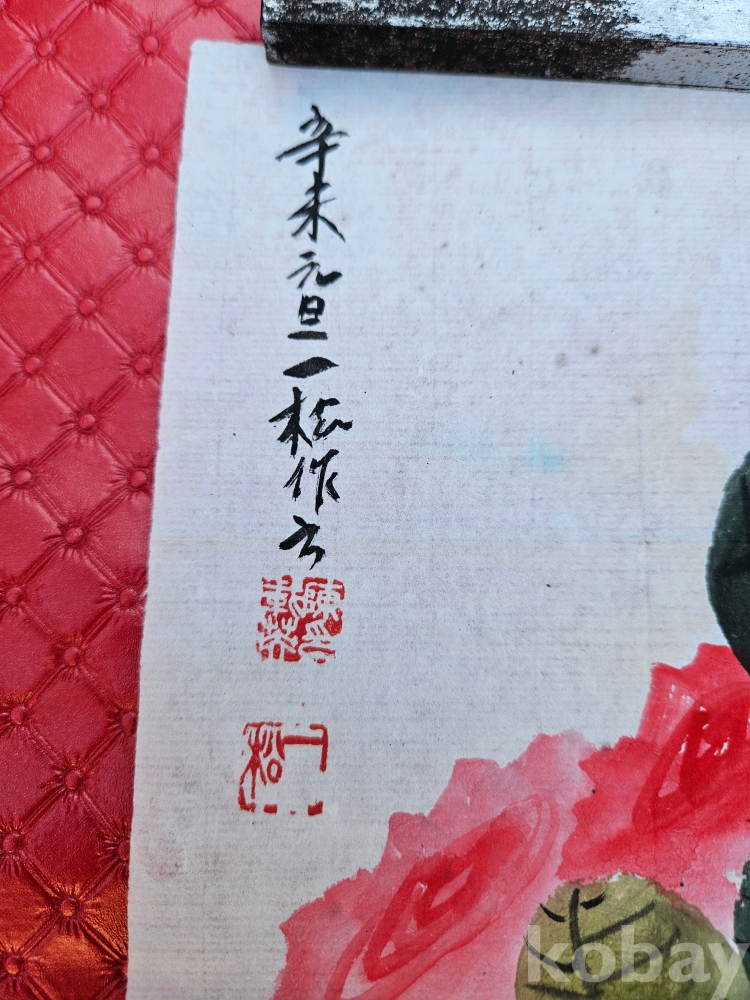 辛未元旦一松作
一松
kobay